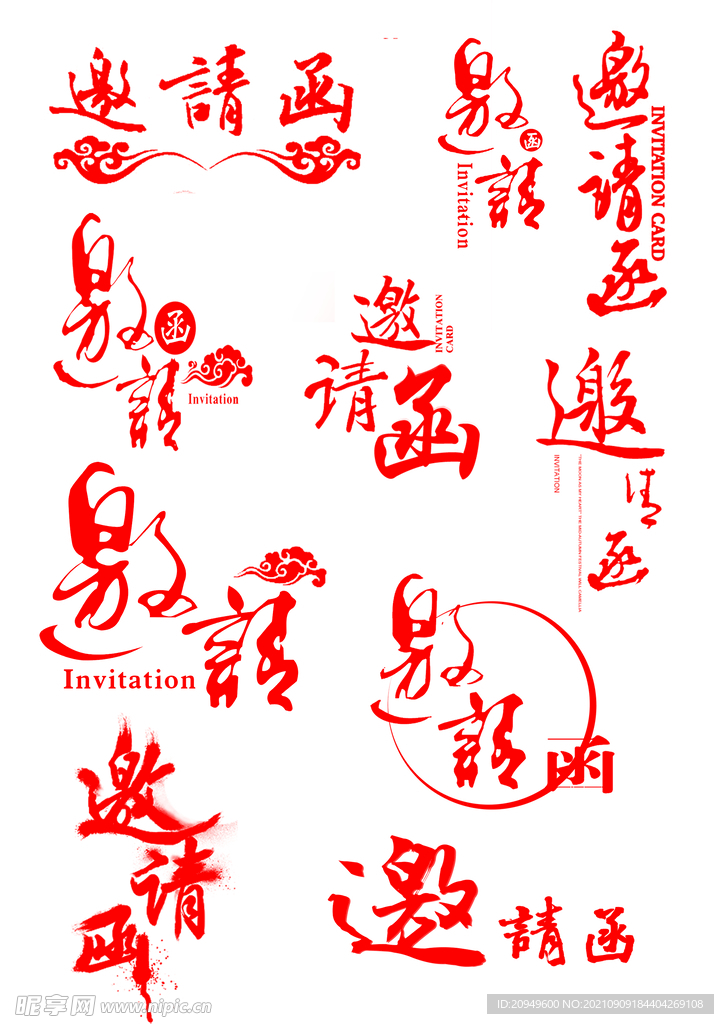 邀請函
邀請
函
Invitation
邀请函
INVITATION CARD
邀請
函
Invitation
邀请函
INVITATION
CARD
邀请函
INVITATION
邀請
Invitation
邀請函
邀请函
邀請函
昵享网 www.nipic.cn
ID:20949600 NO:20210909184404269108